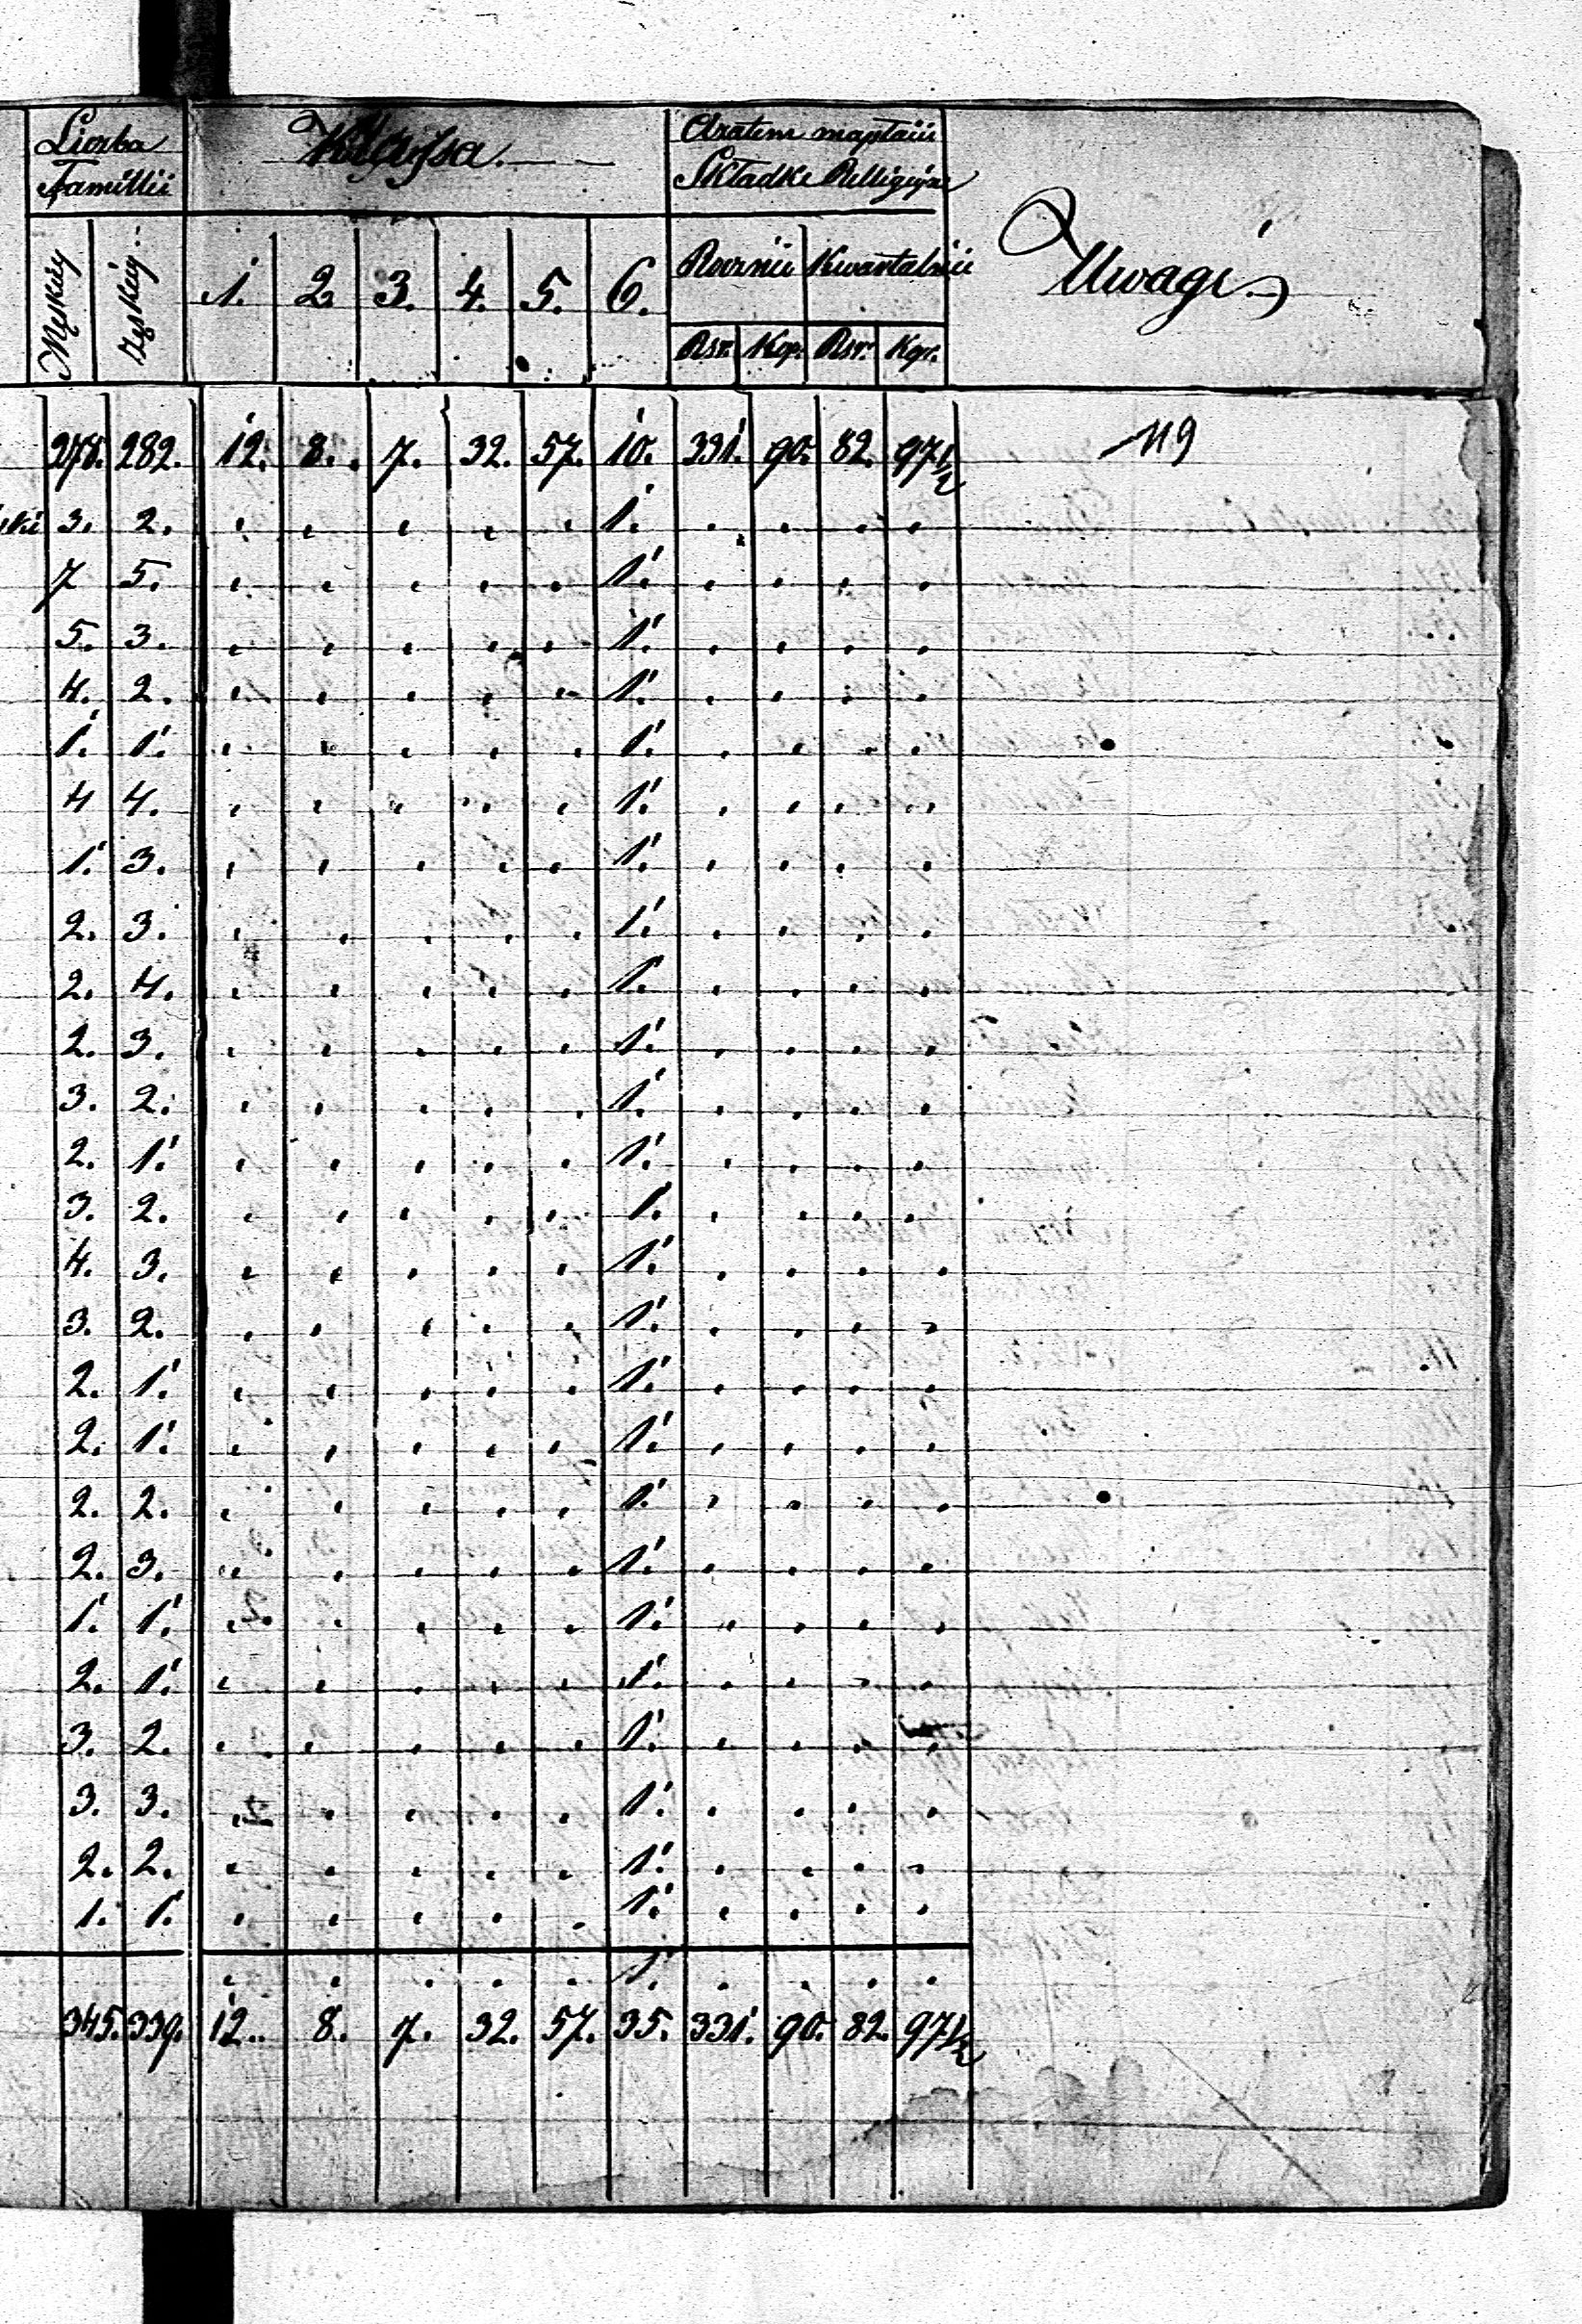 Liczba Familii | Klassa | Zatem [...] Składki Religijne | Uwagi
Męskiey | Żęskiey | 1. | 2. | 3. | 4. | 5. | 6. | Rocznie | Kwartalnie
Rsr. | Kop. | Rsr. | Kop.
278. 282. 12. 8. 7. 32. 57. 10. 331. 90. 82. 97½ 119
3. 2. . . . . . 1. . . . .
7 5. . . . . . 1. . . . .
5. 3. . . . . . 1. . . . .
4. 2. . . . . . 1. . . . .
1. 1. . . . . . 1. . . . .
4 4. . . . . . 1. . . . .
1. 3. . . . . . 1. . . . .
2. 3. . . . . . 1. . . . .
2. 4. . . . . . 1. . . . .
2. 3. . . . . . 1. . . . .
3. 2. . . . . . 1. . . . .
2. 1. . . . . . 1. . . . .
3. 2. . . . . . 1. . . . .
4. 3. . . . . . 1. . . . .
3. 2. . . . . . 1. . . . .
2. 1. . . . . . 1. . . . .
2. 1. . . . . . 1. . . . .
2. 2. . . . . . 1. . . . .
2. 3. . . . . . 1. . . . .
1. 1. . . . . . 1. . . . .
2. 1. . . . . . 1. . . . .
3. 2. . . . . . 1. . . . .
3. 3. . . . . . 1. . . . .
2. 2. . . . . . 1. . . . .
1. 1. . . . . . 1. . . . .
. . . . . 1. . . . .
345. 339. 12. 8. 7. 32. 57. 35. 331. 90. 82. 97½